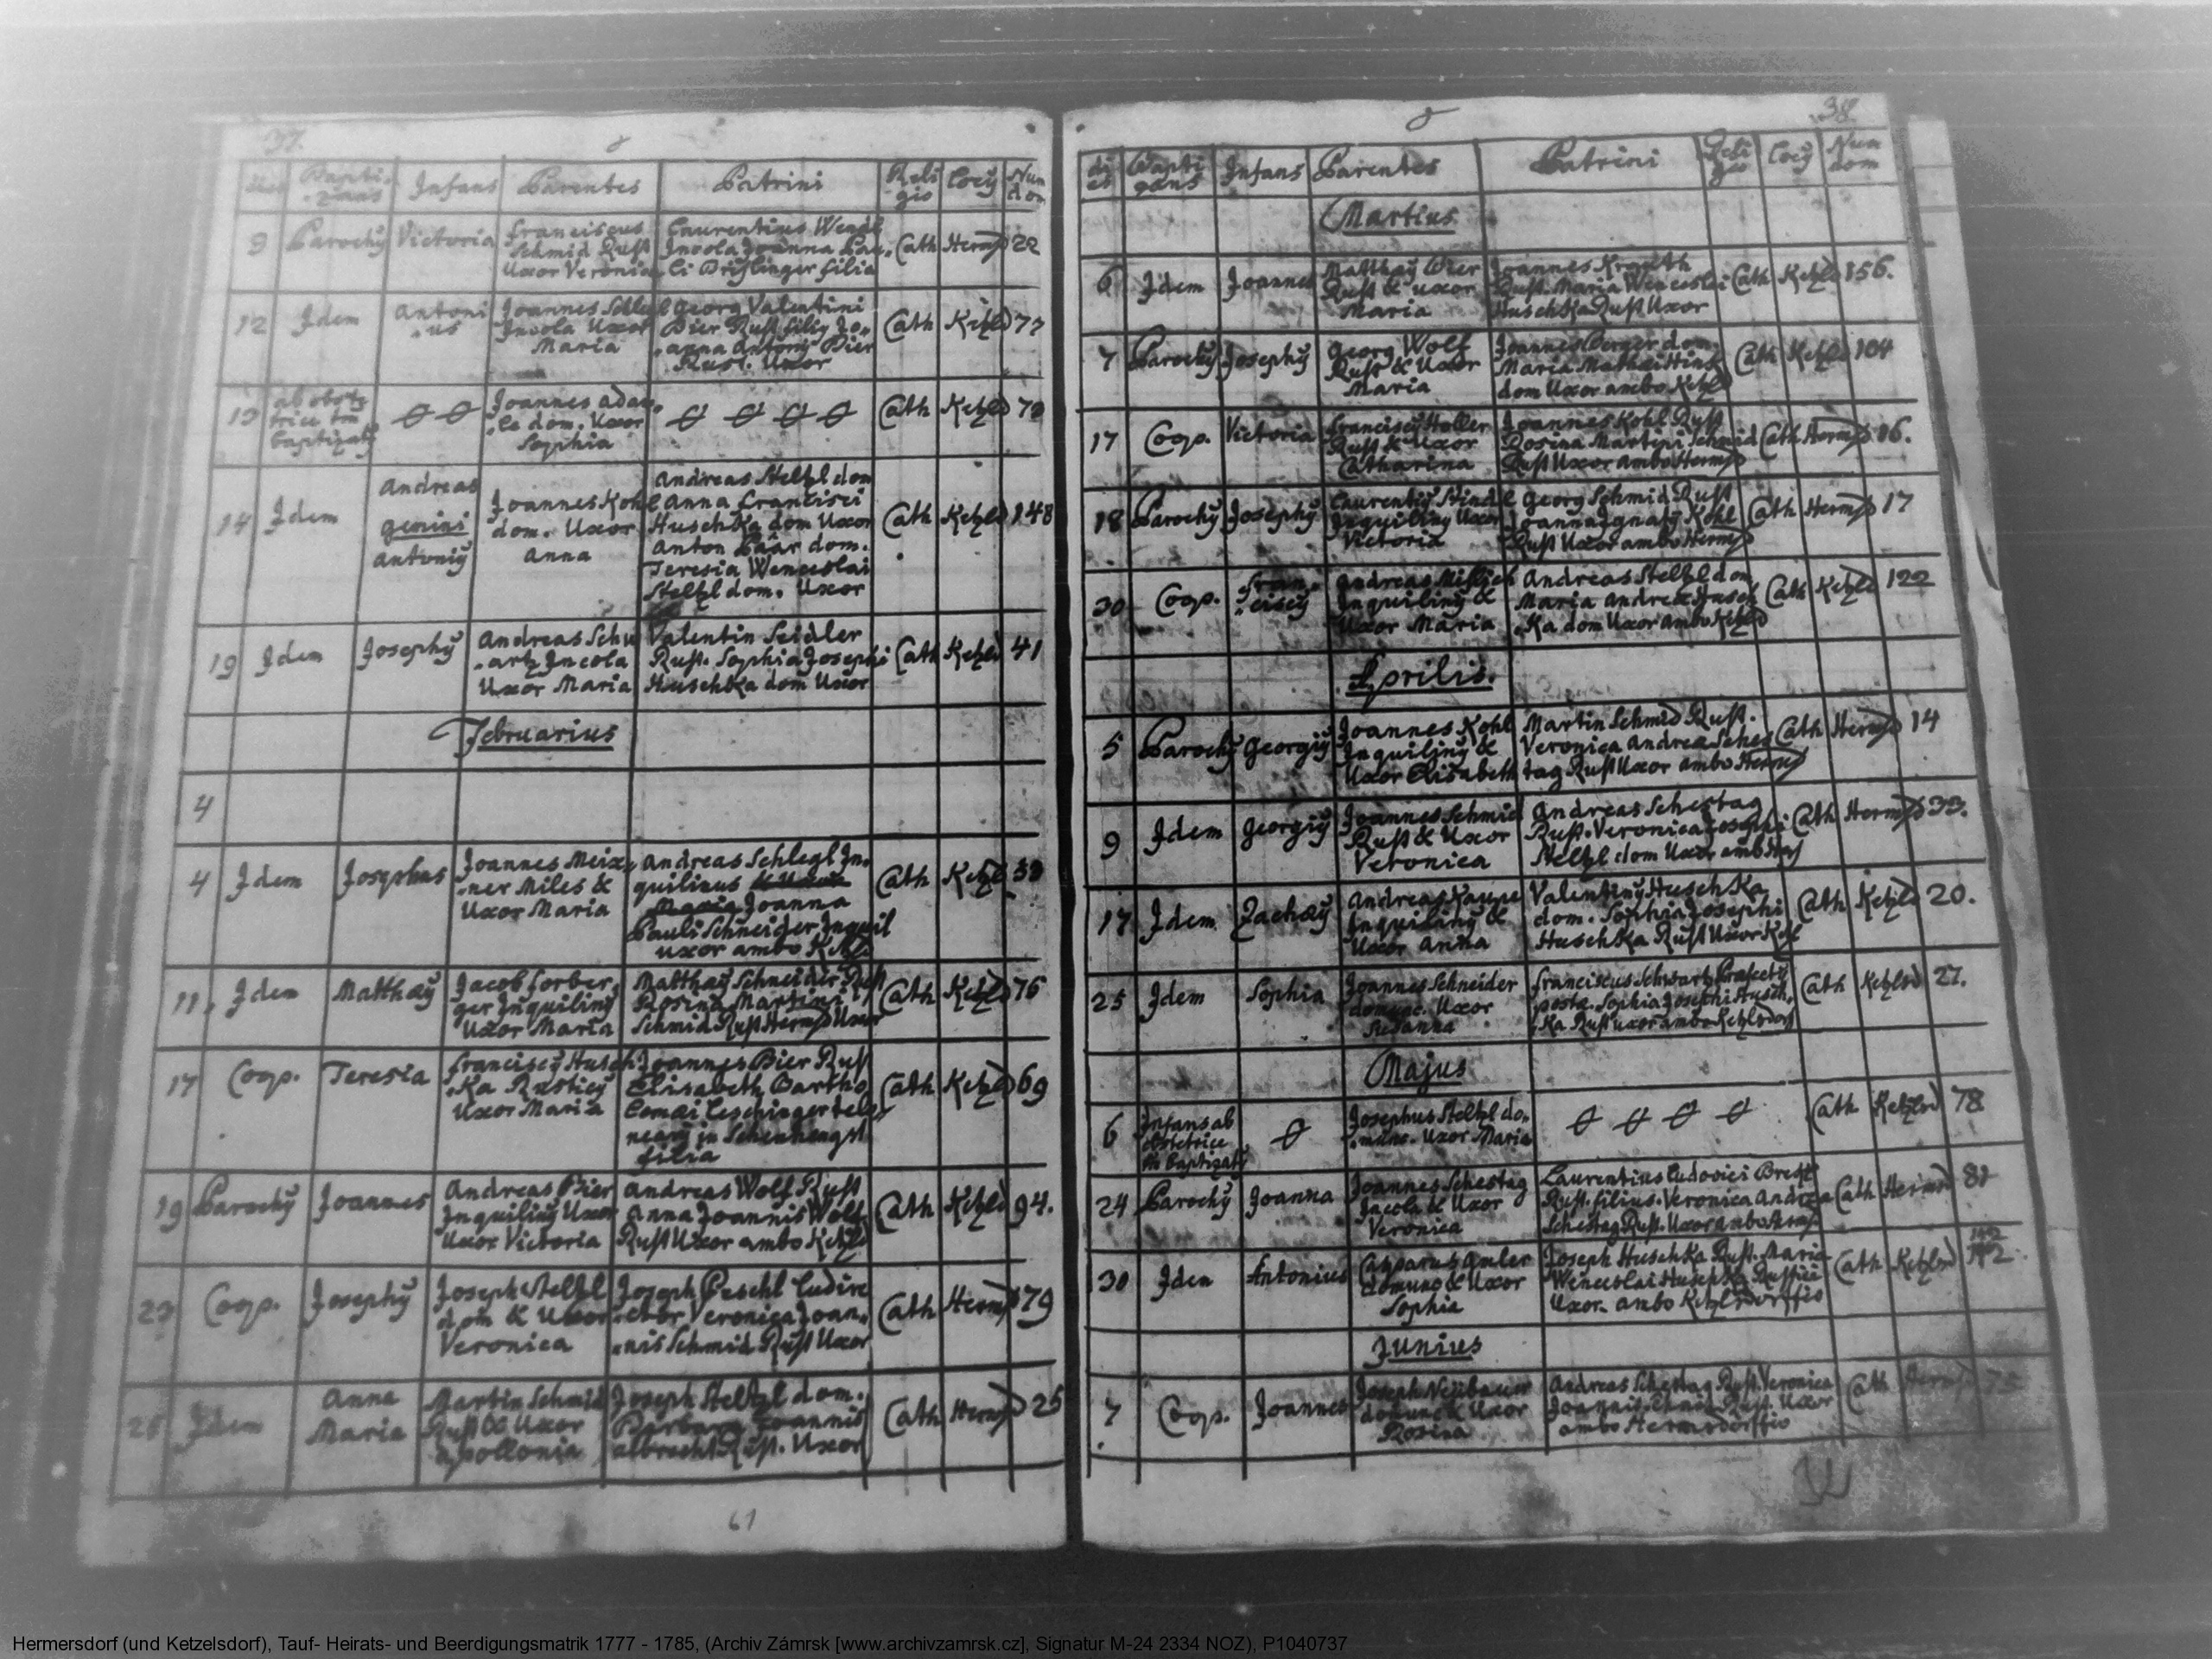 37.
dies Bapti-
zans Infans Parentes Patrini Reli
gio Locy Num
dom
9 Parochy Victoria Franciscus
Schmid Rust
Uxor Veronica Laurentius Wendl
Incola Joanna Pau,
li Brislinger filia Cath Hermsd 22
12 Idem Antoni
us Joannes Schlegl
Incola Uxor
Maria Georg Valentini
Bier Rust filiy Jo,,
,,anna Antony Bier
Rust. Uxor Cath Ketzld 77
13 ab obste
trice
baptizaty Joannes Adam
dom. Uxor
Sophia Cath Ketzld
14 Idem Andreas
gemini
Antoniy Joannes Kohl
dom. Uxor
Anna Andreas Steltzl dom
Anna Francisci
Huschka dom Uxor
Anton dom.
Teresia Wenceslai
Steltzl dom. Uxor Cath Ketzld 148
19 Idem Josephy Andreas Schw
artz Incola
Uxor Maria Valentin Seidler
Rust. Sophia Josephi
Huschka dom Uxor Cath Ketzld 41
Februarius
4
4 Idem Josephus Joannes Meix,
ner Miles &
Uxor Maria Andreas Schlegl In,
quilinus
Joanna
Pauli Schneider Inquil
uxor ambo Ketzld Cath Ketzld
11. Idem Matthæy Jacob Forber,
ger Inquiliny
Uxor Maria Matthæy Schneider Rust
Rosina Martini
Schmid Rust Hermsd Uxor Cath Ketzld 76
17 Coop. Teresia Franciscy Husch
ka Rusticy
Uxor Maria Joannes Bier Rust
Elisabeth Bartho
lomæi Leschinger
in Schenhengst
filia Cath Ketzld 69
19 Parochy Joannes Andreas Bier
Inquiliny Uxor
Uxor Victoria Andreas Wolf Rust
Anna Joannis Wolf
Rust Uxor ambo Ketzld Cath Ketzld 94.
23 Coop. Josephy Joseph Steltzl
dom & Uxor
Veronica Joseph Peschl Ludire
ctor, Veronica Joan,
nis Schmid Rust Uxor Cath Hermsd 79
Idem Anna
Maria Martin Schmid
Rust & Uxor
Apollonia Joseph Steltzl dom.
Barbara Joannis
Albrecht Rust. Uxor Cath Hermsd 25
61
38
di
es Bapti
zans Infans Parentes Patrini Reli
gio Locy Num
dom
Martius
6 Idem Joannes Matthæy Bier
Rust & uxor
Maria Joannes
Rust. Maria Wenceslai
Huschka Rust Uxor Cath Ketzld 156.
7 Parochy Josephy Georg Wolf
Rust & Uxor
Maria Joannes Berger dom.
Maria Mathæi
dom Uxor ambo Ketzld Cath Ketzld 104
17 Coop. Victoria Franciscy Haller
Rust & Uxor
Catharina Joannes Kohl Rust
Rosina Martini Schmid
Rust Uxor ambo Hermsd Cath Hermsd 16.
18 Parochy Josephy Laurentiy Stindl
Inquiliny Uxor
Victoria Georg Schmid Rust
Joanna Ignaty Kohl
Rust Uxor ambo Hermsd Cath Hermsd 17
30 Coop. Fran,
ciscy Andreas
Inquiliny &
Uxor Maria Andreas Steltzl dom
Maria Andreæ Husch
ka dom Uxor ambo Ketzld Cath Ketzld 122
Aprilis.
5 Parochy Georgiy Joannes Kohl
Inquiliny &
Uxor Elisabeth Martin Schmid Rust.
Veronica Andreæ Sches
tag Rust Uxor ambo Hermsd Cath Hermsd 14
9 Idem Georgiy Joannes Schmid
Rust & Uxor
Veronica Andreas Schestag
Rust. Veronica Josephi
Steltzl dom Uxor ambo Cath Hermsd 33.
17 Idem Zachæy Andreas
Inquiliny &
Uxor Anna Valentiny Huschka
dom. Sophia Josephi
Huschka Rust Uxor Cath Ketzld 20.
25 Idem Sophia Joannes Schneider
domunc. Uxor
Susanna Franciscus Schwartz
Sophia Josephi Husch,
ka Rust uxor ambo Ketzlsdorf Cath Ketzlsd 27.
Majus
6 Infans ab
obstetrice
baptizaty Josephus Steltzl do,
munc. Uxor Maria Cath Ketzlsd 78
24 Parochy Joanna Joannes Schestag
Incola & Uxor
Veronica Laurentius Ludovici
Rust. filius. Veronica Andreæ
Schestag Rust. Uxor ambo Cath Hermsd 81
30 Idem Antonius Casparus
domunc & Uxor
Sophia Joseph Huschka Rust. Maria
Wenceslai Huschka Rustici
Uxor. ambo Ketzlsdorffio Cath Ketzlsd
Junius
7 Coop. Joannes Joseph Neübauer
domunc & Uxor
Rosina Andreas Schestag Rust. Veronica
Joannis Schmid Rust. Uxor
ambo Hermsdorffio Cath Hermsd
Hermersdorf (und Ketzelsdorf), Tauf- Heirats- und Beerdigungsmatrik 1777 - 1785, (Archiv Zámrsk [www.archivzamrsk.cz], Signatur M-24 2334 NOZ), P1040737